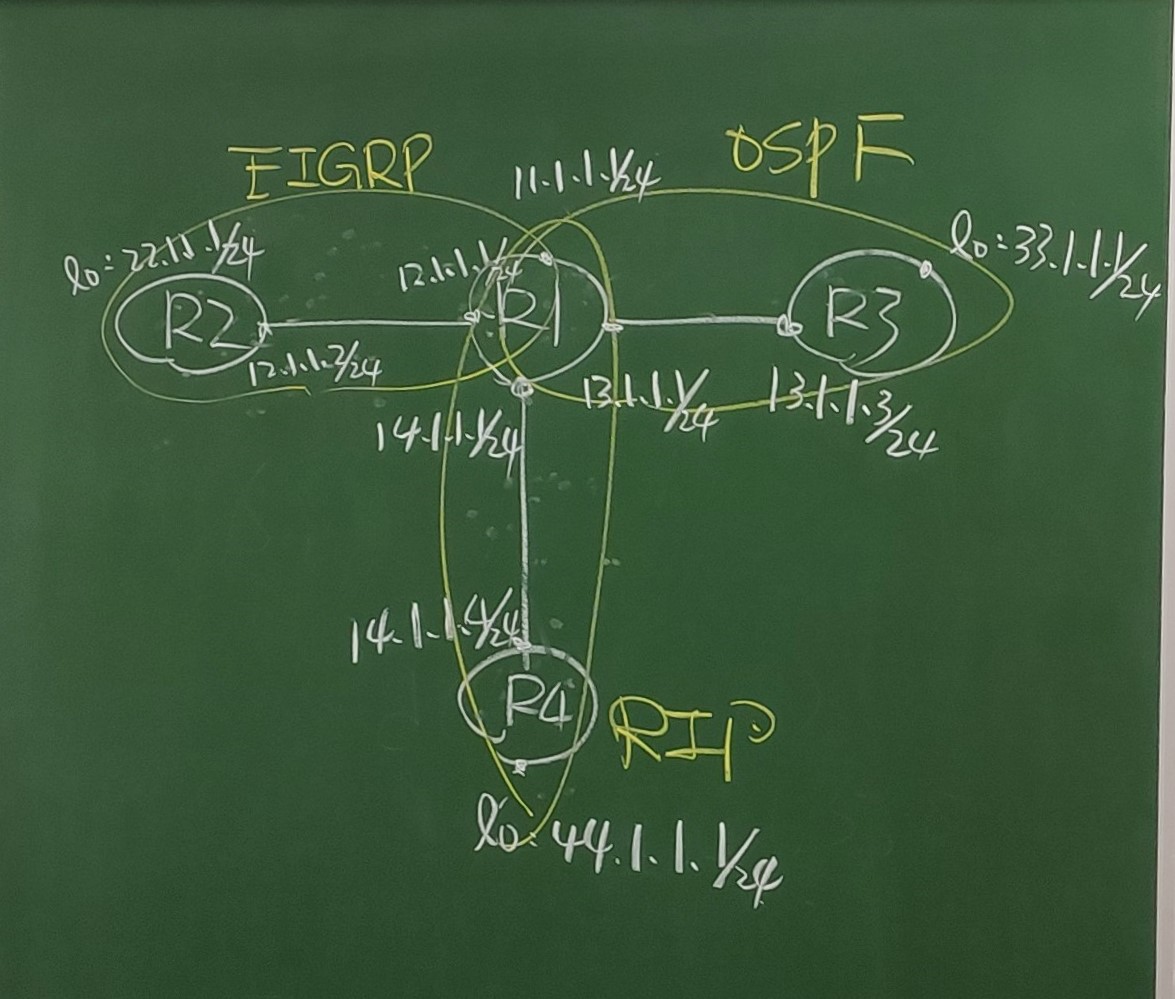 EIGRP
OSPF
11.1.1.1/24
lo:22.1.1.1/24
12.1.1.1/24
lo:33.1.1.1/24
R2
R1
R3
12.1.1.2/24
13.1.1.1/24
13.1.1.3/24
14.1.1.1/24
14.1.1.4/24
R4
RIP
lo:44.1.1.1/24